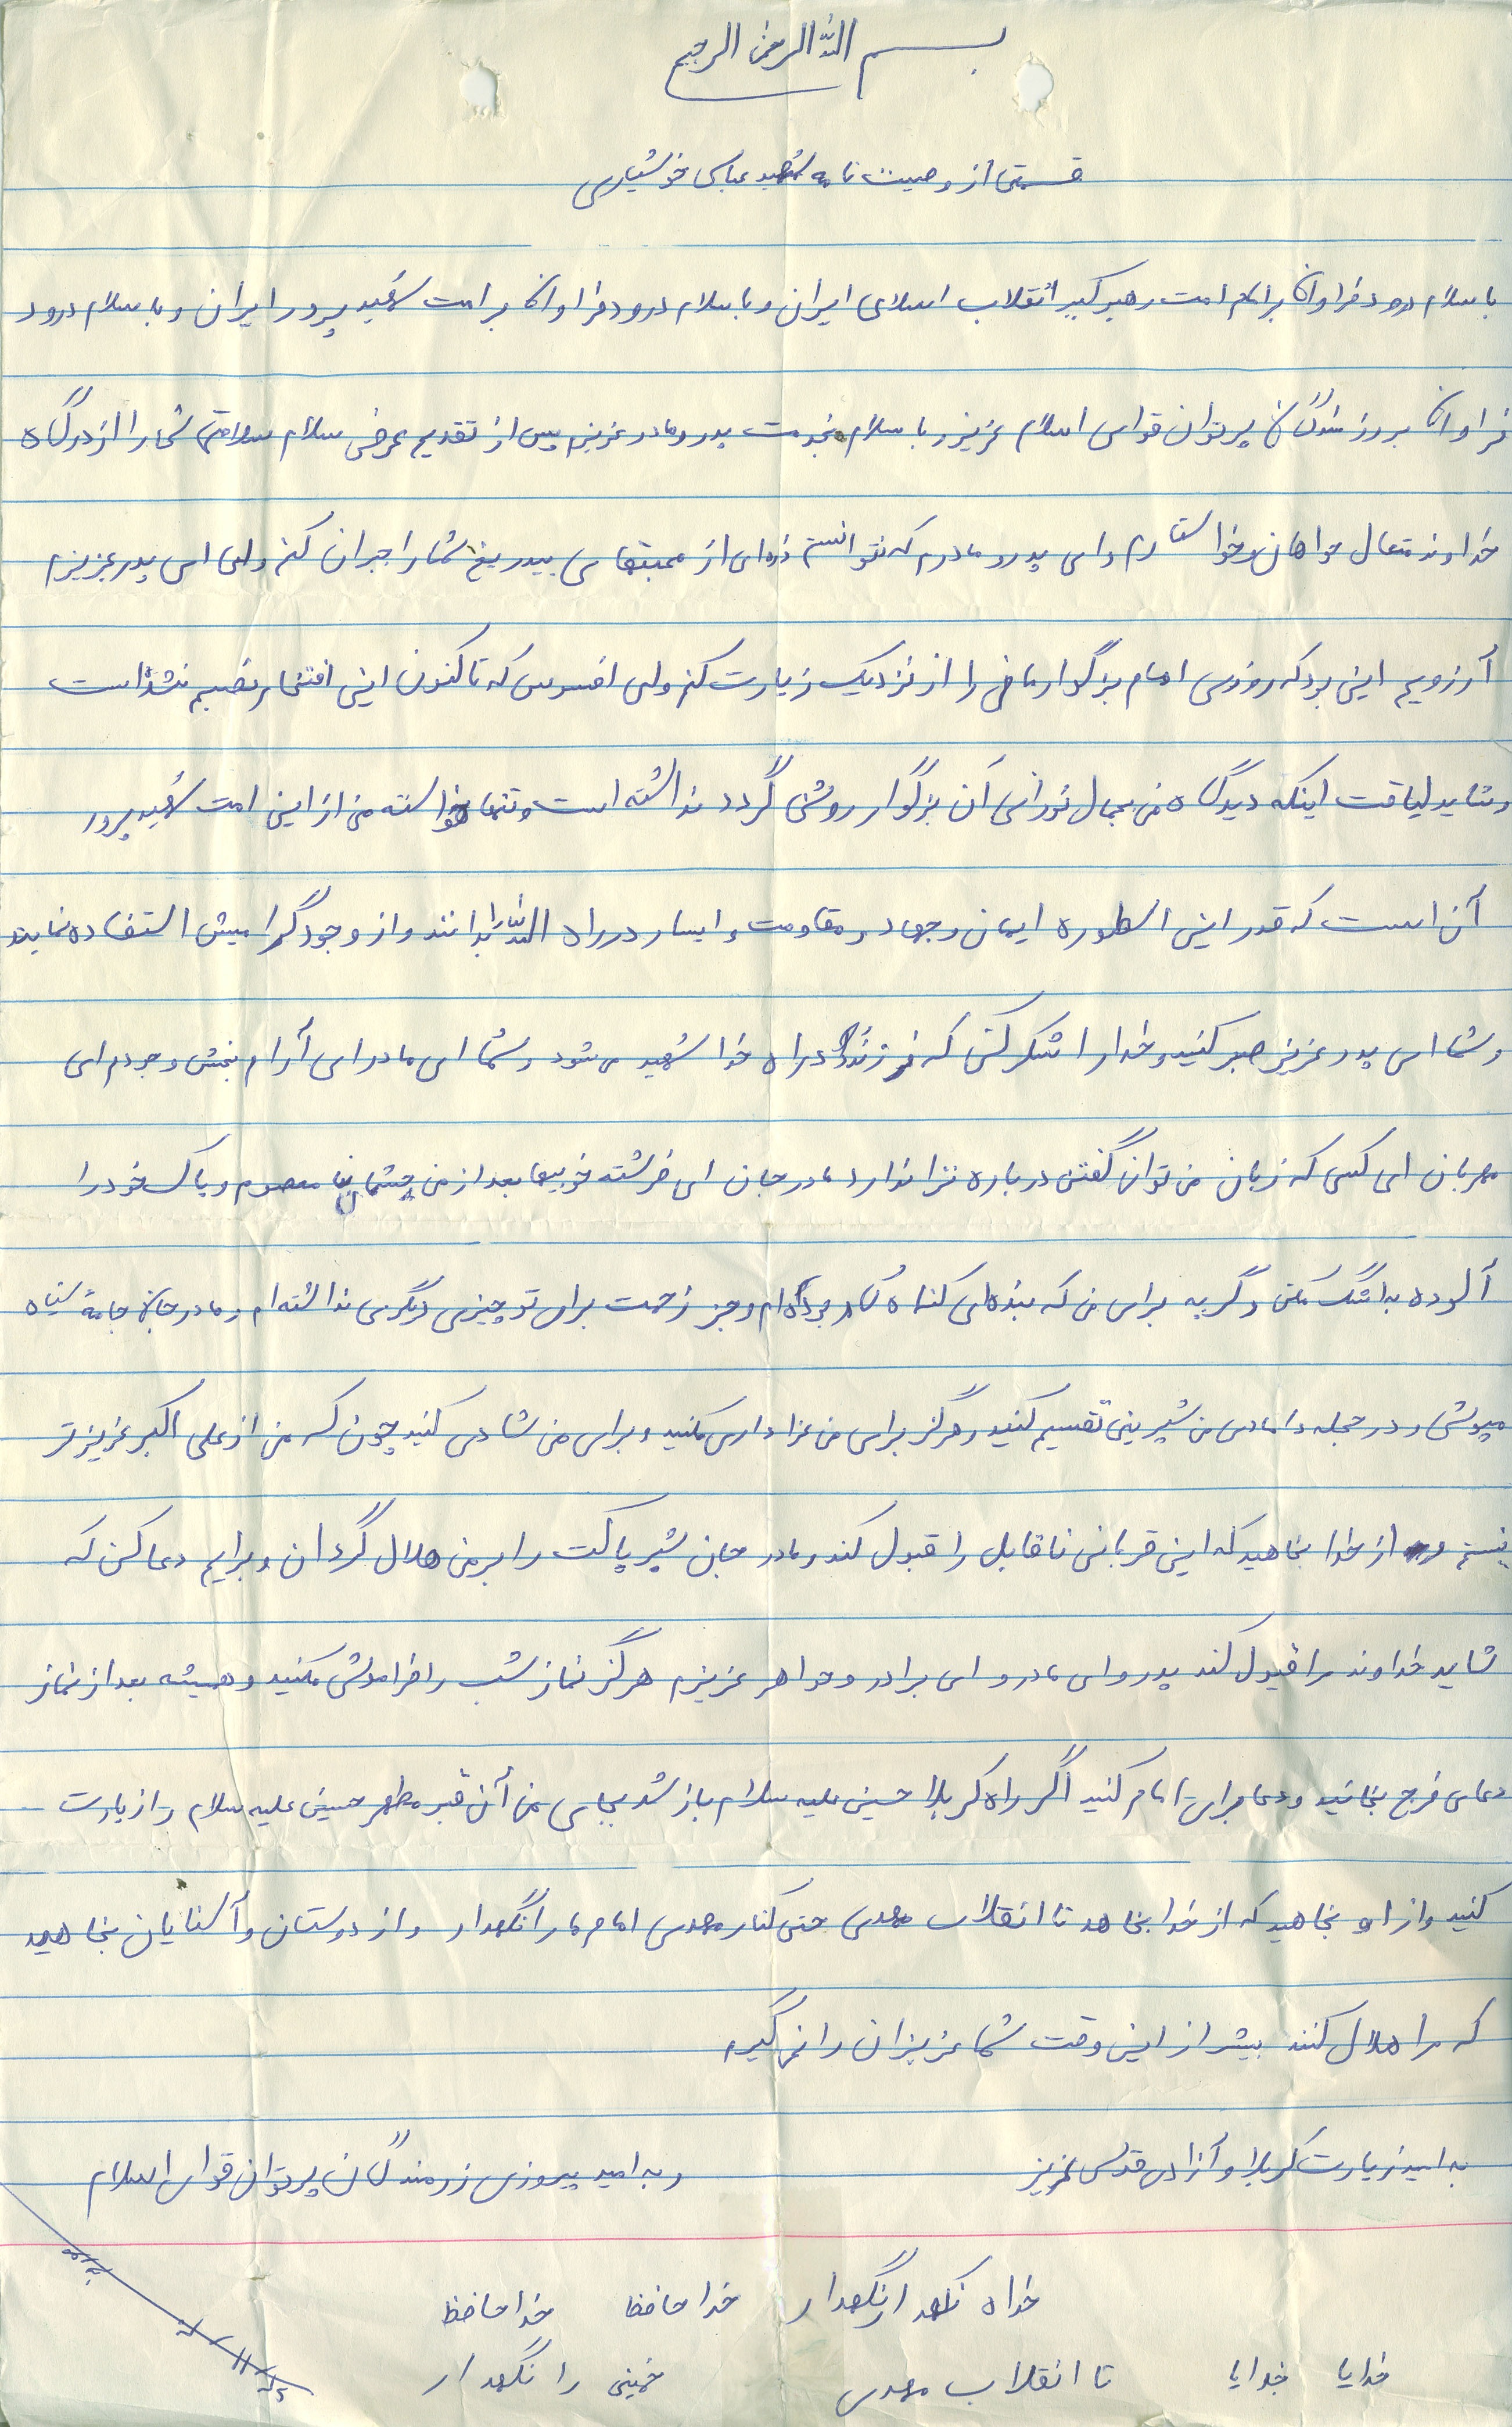 بسم الله الرحمن الرحیم
قسمتی از وصیت نامه شهید عباس خوشیاری
با سلام درود فراوان بر امام امت رهبر کبیر انقلاب اسلامی ایران و با سلام درود فراوان بر امت شهید پرور ایران و با سلام درود
فراوان بر رزمندگان پر توان قوای اسلام عزیز و با سلام بخدمت پدر و مادر عزیزم پس از تقدیم عرض سلام سلامتی شما را از درگاه
خداوند متعال خواهان و خواستارم و ای پدر و مادرم که نتوانستم ذره‌ای از محبتهای بیدریغ شما را جبران کنم ولی ای پدر عزیزم
آرزویم این بود که روزی امام بزگوارمان را از نزدیک زیارت کنم ولی افسوس که تا کنون این افتخار نصیبم نشده است
و شاید لیاقت اینکه دیدگاه من بجمال نورانی آن بزگوار روشن گردد نداشته است و تنها خواسته من از این امت شهید پرور
آن است که قدر این اسطوره ایمان و جهاد و مقاومت و ایسار در راه الله را بدانند و از وجود گرامیش استفاده نمایند
و شما ای پدر عزیز صبر کنید و خدا را شکر کن که فرزندت در راه خدا شهید می شود و شما ای مادر ای آرام بخش وجودم ای
مهربان ای کسی که زبان من توان گفتن درباره تنرا ندارد مادر جان ای فرشته خوبیها بعد از من چشمان معصوم و پاک خود را
آلوده به اشک مکن و گریه برای من که بنده‌ای گناه کار بوده‌ام و جز زحمت برای تو چیزی دیگری نداشته‌ام و مادر جان جامهٔ سیاه
مپوش و در حجله دامادی من شیرینی تقسیم کنید و هرگز برای من عزاداری مکنید و برای من شادی کنید چون که من از علی اکبر عزیزتر
نیستم از خدا بخاهید که این قربانی ناقابل را قبول کند و مادر جان شیر پاکت را بر من هلال گردان و برایم دعا کن که
شاید خداوند مرا قبول کند پدر و ای مادر و ای برادر و خواهر عزیزم هرگز نماز شب را فراموش مکنید و همیشه بعد از نماز
دعای فرج بخانید و دعا برای امام کنید اگر راه کربلا حسین علیه سلام باز شد بجای من آن قبر مطهر حسین علیه سلام را زیارت
کنید و از او بخاهید که از خدا بخاهد تا انقلاب مهدی حتی کنار مهدی امام ما را نگهدار و از دوستان و آشنایان بخاهید
که مرا هلال کنند بیشر از این وقت شما عزیزان را نمی گیرم
به امید زیارت کربلا و آزادی قدس عزیز و به امید پیروزی رزمندگان پرتوان قوای اسلام
خداه نگهدار نگهدار خدا حافظ خدا حافظ
خدایا خدایا تا انقلاب مهدی خمینی را نگهدار